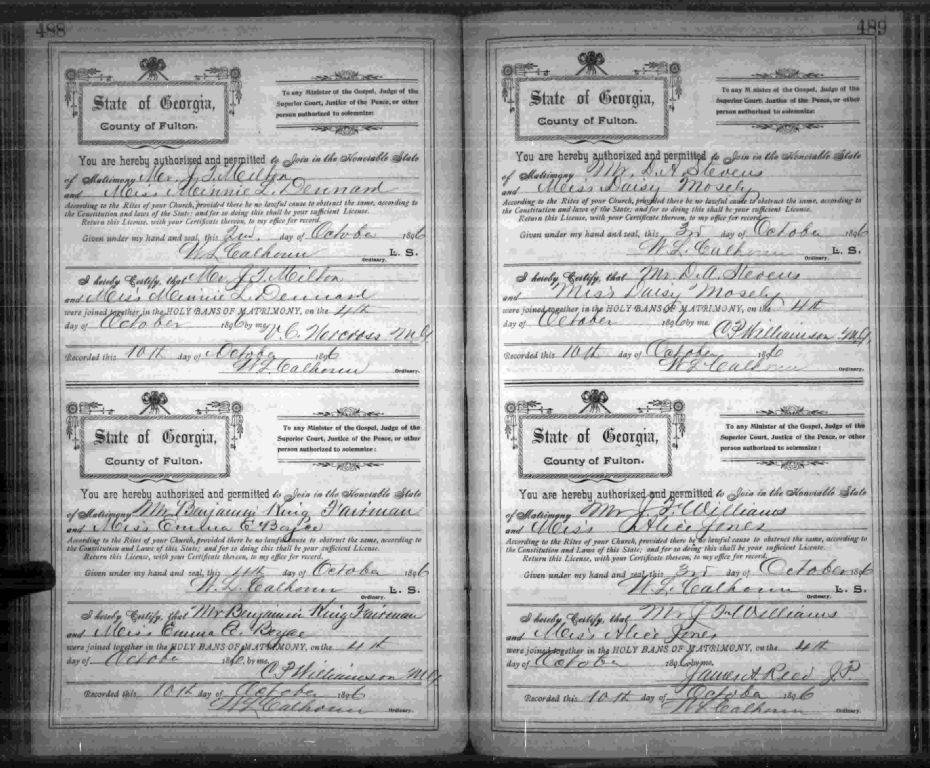 488
State of Georgia,
County of Fulton.
To any Minister of the Gospel, Judge of the
Superior Court, Justice of the Peace, or other
person authorized to solemnize:
You are hereby authorized and permitted to Join in the Honorable State
of Matrimony Mr. J. T. Milton
and Miss Minnie L. Dennard
According to the Rites of your Church, provided there be no lawful cause to obstruct the same, according to
the Constitution and laws of the State; and for so doing this shall be your sufficient License.
Return this License, with your Certificate thereon, to my office for record.
Given under my hand and seal, this 2nd day of October 1896
W L Calhoun L. S.
Ordinary.
I hereby Certify, that Mr J T Milton
and Miss Minnie L. Dennard
were joined together in the HOLY BANS OF MATRIMONY, on the 4th
day of October 1896 by me
V. C. Norcross M.G.
Recorded this 10th day of October 1896
W L Calhoun Ordinary.
State of Georgia,
County of Fulton.
To any Minister of the Gospel, Judge of the
Superior Court, Justice of the Peace, or other
person authorized to solemnize:
You are hereby authorized and permitted to Join in the Honorable State
of Matrimony Mr Benjamin King Fairman
and Miss Emma E
According to the Rites of your Church, provided there be no lawful cause to obstruct the same, according to
the Constitution and Laws of this State; and for so doing this shall be your sufficient License.
Return this License, with your Certificate thereon, to my office for record.
Given under my hand and seal, this day of October 1896
W. L. Calhoun L. S.
Ordinary.
I hereby Certify, that Mr Benjamin King Fairman
and Miss Emma E.
were joined together in the HOLY BANS OF MATRIMONY, on the 4th
day of October 1896 by me
C P Williamson M.G.
Recorded this 10th day of October 1896
W L Calhoun Ordinary.
489
State of Georgia,
County of Fulton.
To any Minister of the Gospel, Judge of the
Superior Court, Justice of the Peace, or other
person authorized to solemnize:
You are hereby authorized and permitted to Join in the Honorable State
of Matrimony Mr. D. A Stevens
and Miss Daisy Mosely
According to the Rites of your Church, provided there be no lawful cause to obstruct the same, according to
the Constitution and laws of this State; and for so doing this shall be your sufficient License.
Return this License, with your Certificate thereon, to my office for record.
Given under my hand and seal, this 3rd day of October 1896
W. L. Calhoun L. S.
Ordinary.
I hereby Certify, that Mr. D. A. Stevens
and Miss Daisy Mosely
were joined together in the HOLY BANS OF MATRIMONY, on the 4th
day of October 1896 by me.
C P Williamson M.G.
Recorded this 10th day of October 1896
W L Calhoun Ordinary.
State of Georgia,
County of Fulton.
To any Minister of the Gospel, Judge of the
Superior Court, Justice of the Peace, or other
person authorized to solemnize:
You are hereby authorized and permitted to Join in the Honorable State
of Matrimony Mr J. F. Williams
and Miss Alice Jones
According to the Rites of your Church, provided there be no lawful cause to obstruct the same, according to
the Constitution and Laws of this State; and for so doing this shall be your sufficient License.
Return this License, with your Certificate thereon, to my office for record.
Given under my hand and seal, this 3rd day of October 1896
W. L. Calhoun L. S.
Ordinary.
I hereby Certify, that Mr J. F. Williams
and Miss Alice Jones
were joined together in the HOLY BANS OF MATRIMONY, on the 4th
day of October 1896 by me,
James A Reed J.P.
Recorded this 10th day of October 1896
W L Calhoun Ordinary.